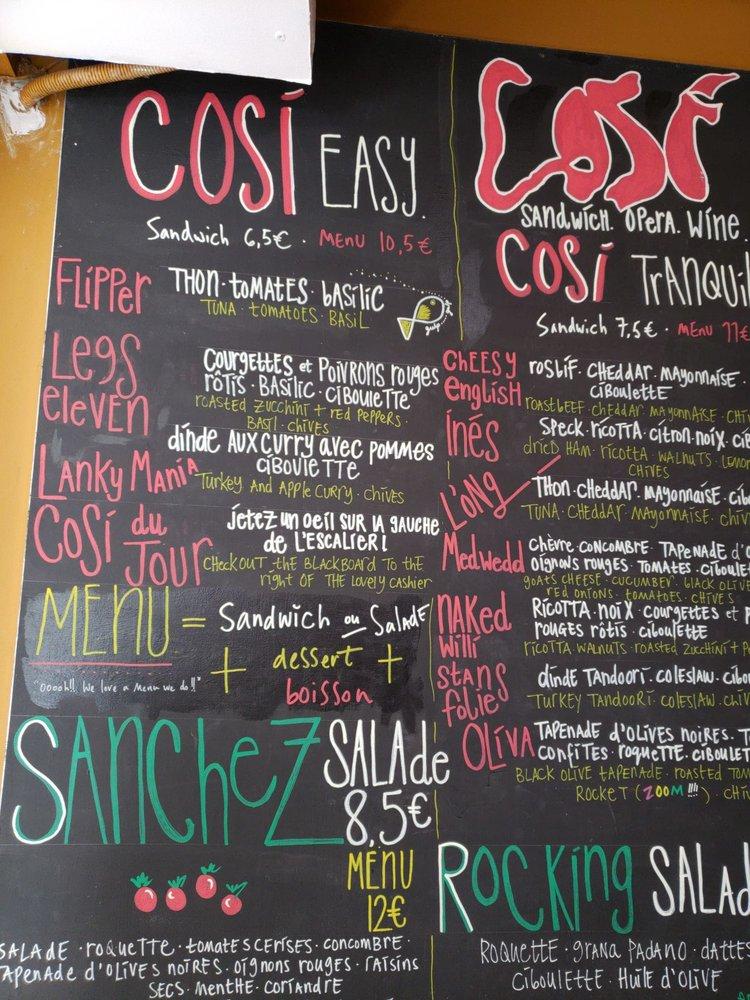 COSÍ EASY.
Sandwich 6,5€ · MENU 10,5€
FLIPPER
THON · TOMATES · BASILIC
TUNA · TOMATOES · BASIL
gulp...
LEGS ELEVEN
COURGETTES et POIVRONS ROUGES
RÔTIS · BASILIC · CIBOULETTE
ROASTED ZUCCHINI + RED PEPPERS ·
BASIL · CHIVES
LANKY MANIA
DINDE AUX CURRY AVEC POMMES
CIBOULETTE
TURKEY AND APPLE CURRY · CHIVES
COSÍ du JOUR
JETEZ UN OEIL SUR LA GAUCHE
DE L'ESCALIER!
CHECKOUT THE BLACKBOARD TO THE
RIGHT OF THE LOVELY CASHIER
MENU = Sandwich ou SALADE
+ dessert +
boisson
"Ooooh!! We love a Menu we do!!"
SANCHEZ SALADE
8,5€
MENU
12€
SALADE · ROQUETTE · TOMATES CERISES · CONCOMBRE ·
TAPENADE D'OLIVES NOIRES · OIGNONS ROUGES · RAISINS
SECS · MENTHE · CORIANDRE
COSÍ
SANDWICH. OPERA. WINE.
COSÍ
Sandwich 7,5€ · MENU 11€
CHEESY ENGLISH
ROSBIF · CHEDDAR · MAYONNAISE ·
CIBOULETTE
ROASTBEEF · CHEDDAR · MAYONNAISE ·
INÉS
SPECK · RICOTTA · CITRON · NOIX ·
DRIED HAM · RICOTTA · WALNUTS ·
CHIVES
L'ONG
THON · CHEDDAR · MAYONNAISE ·
TUNA · CHEDDAR · MAYONNAISE ·
MEDWEDD
CHÈVRE CONCOMBRE · TAPENADE
OIGNONS ROUGES · TOMATES ·
GOATS CHEESE · CUCUMBER · BLACK
RED ONIONS · TOMATOES · CHIVES
NAKED WILLI
RICOTTA · NOIX · COURGETTES et
ROUGES RÔTIS · CIBOULETTE
RICOTTA · WALNUTS · ROASTED ZUCCHINI +
STANS FOLIE
DINDE TANDOORI · COLESLAW ·
TURKEY TANDOORI · COLESLAW ·
OLIVA
TAPENADE D'OLIVES NOIRES ·
CONFITES · ROQUETTE ·
BLACK OLIVE TAPENADE · ROASTED
ROCKET (ZOOM !!!!) ·
ROCKING
ROQUETTE · GRANA PADANO · DATTES
CIBOULETTE · HUILE D'OLIVE